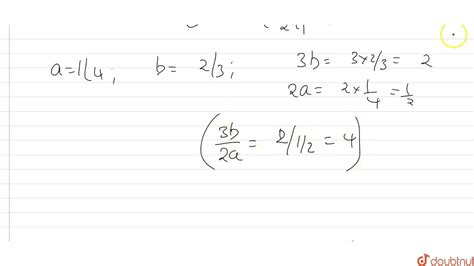 a=1/4; b= 2/3; 3b= 3×2/3= 2
2a= 2×1/4=1/2
(3b/2a= 2/1/2=4)
doubtnut